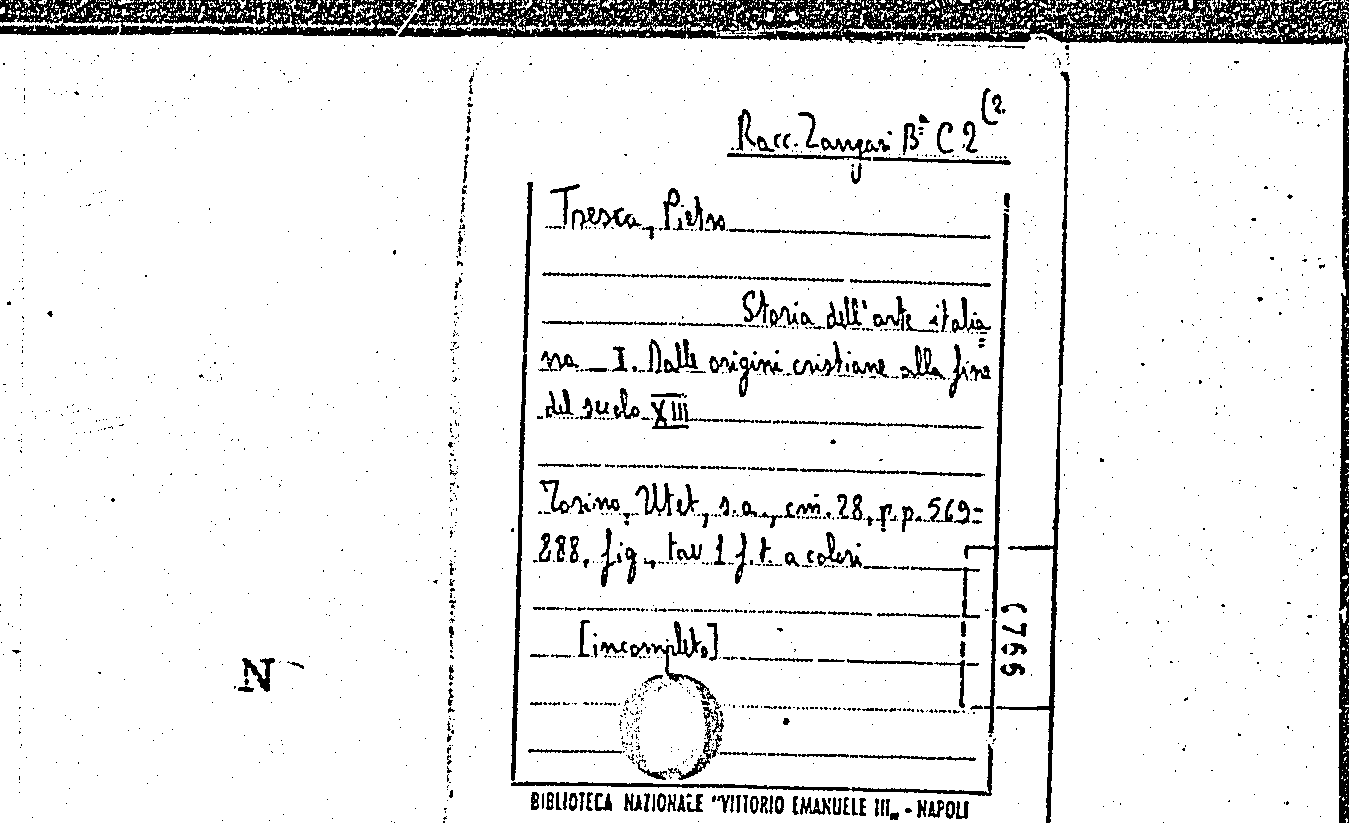 Racc. Zangari Bª C 2 (2.
Tresca, Pietro
Storia dell'arte italia=
na _ I. Dalle origini cristiane alla fine
del secolo XIII
Torino, Utet, s.a., cm. 28, p.p. 569-
288, fig., tav 1 f.t. a colori
[incompleto]
C766
N
BIBLIOTECA NAZIONALE "VITTORIO EMANUELE III„ - NAPOLI